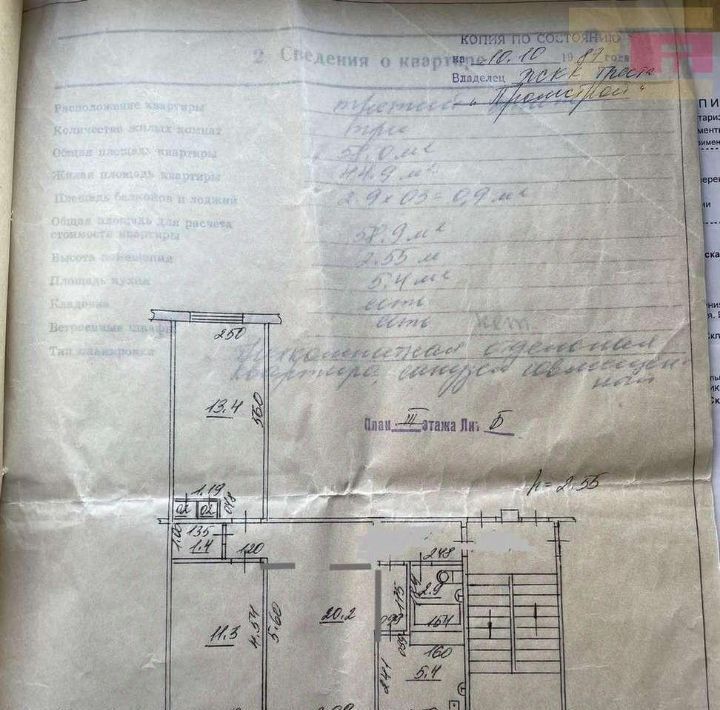 КОПИЯ ПО СОСТОЯНИЮ
на 10.10 1987 года
2. Сведения о квартире
Владелец ЖСКК треста
"Промстрой"
Расположение квартиры третий этаж
Количество жилых комнат три
Общая площадь квартиры 58.0 м²
Жилая площадь квартиры 44.9 м²
Площадь балконов и лоджий 2.9 x 03 = 0,9 м²
Общая площадь для расчета
стоимости квартиры 58.9 м²
Высота помещения 2.55 м
Площадь кухни 5.4 м²
Кладовка есть
Встроенные шкафы есть нет
Тип планировки Трехкомнатная отдельная
квартира, санузел совмещен
ный
План III этажа Лит Б
h = 2.55
250
13.4
560
1.19
02
02
048
1.00
135
1.4
120
248
2.9
115
164
11.3
4.54
5.60
20.2
160
5.4
241